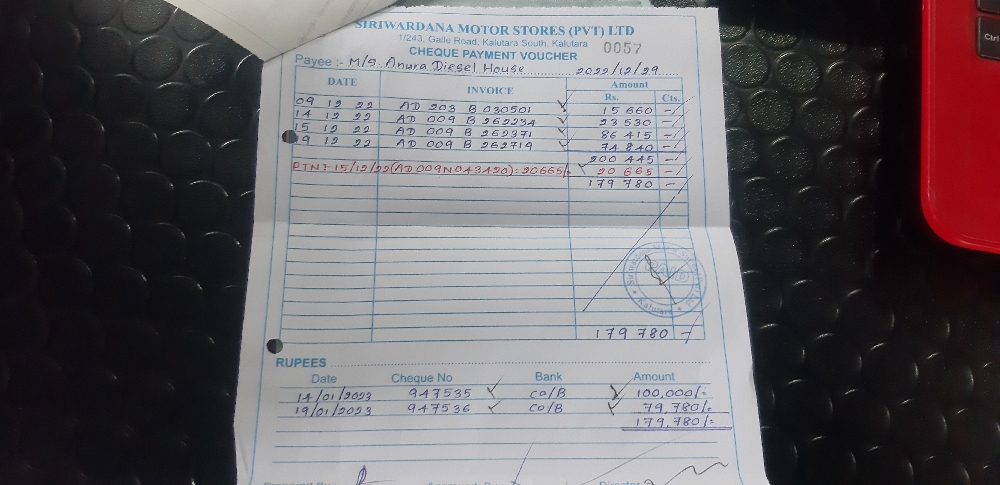 SIRIWARDANA MOTOR STORES (PVT) LTD
1/243, Galle Road, Kalutara South, Kalutara 0057
CHEQUE PAYMENT VOUCHER
Payee :- M/S. Anura Diesel House 2022/12/29
DATE INVOICE Amount
Rs. Cts.
09 12 22 AD 203 B 030501 15 660 -/
14 12 22 AD 009 B 262234 23 530 -/
15 12 22 AD 009 B 262371 86 415 -/
19 12 22 AD 009 B 262719 74 840 -/
200 445 -/
RTN: 15/12/22 (AD009N043420): 20665/- 20 665 -/
179 780 -/
179 780 -/
RUPEES
Date Cheque No Bank Amount
14/01/2023 947535 CO/B 100,000/-
19/01/2023 947536 CO/B 79,780/-
179,780/-